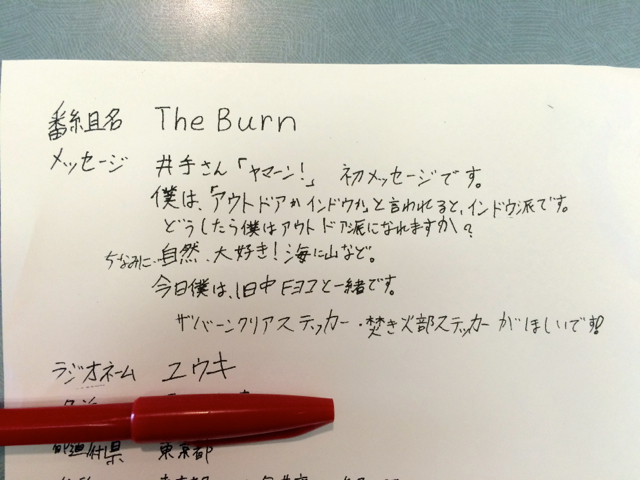 番組名 The Burn
メッセージ 井手さん「ヤマーン!」 初メッセージです。
僕は、「アウトドアかインドウか」と言われると、インドウ派です。
どうしたら僕はアウトドア派になれますか?
ちなみに、自然、大好き!海に山など。
今日僕は、旧中FヨコÉと一緒です。
ザバーンクリアステッカー・焚き火部ステッカーがほしいです!!
ラジオネーム ユウキ
都道府県 東京都